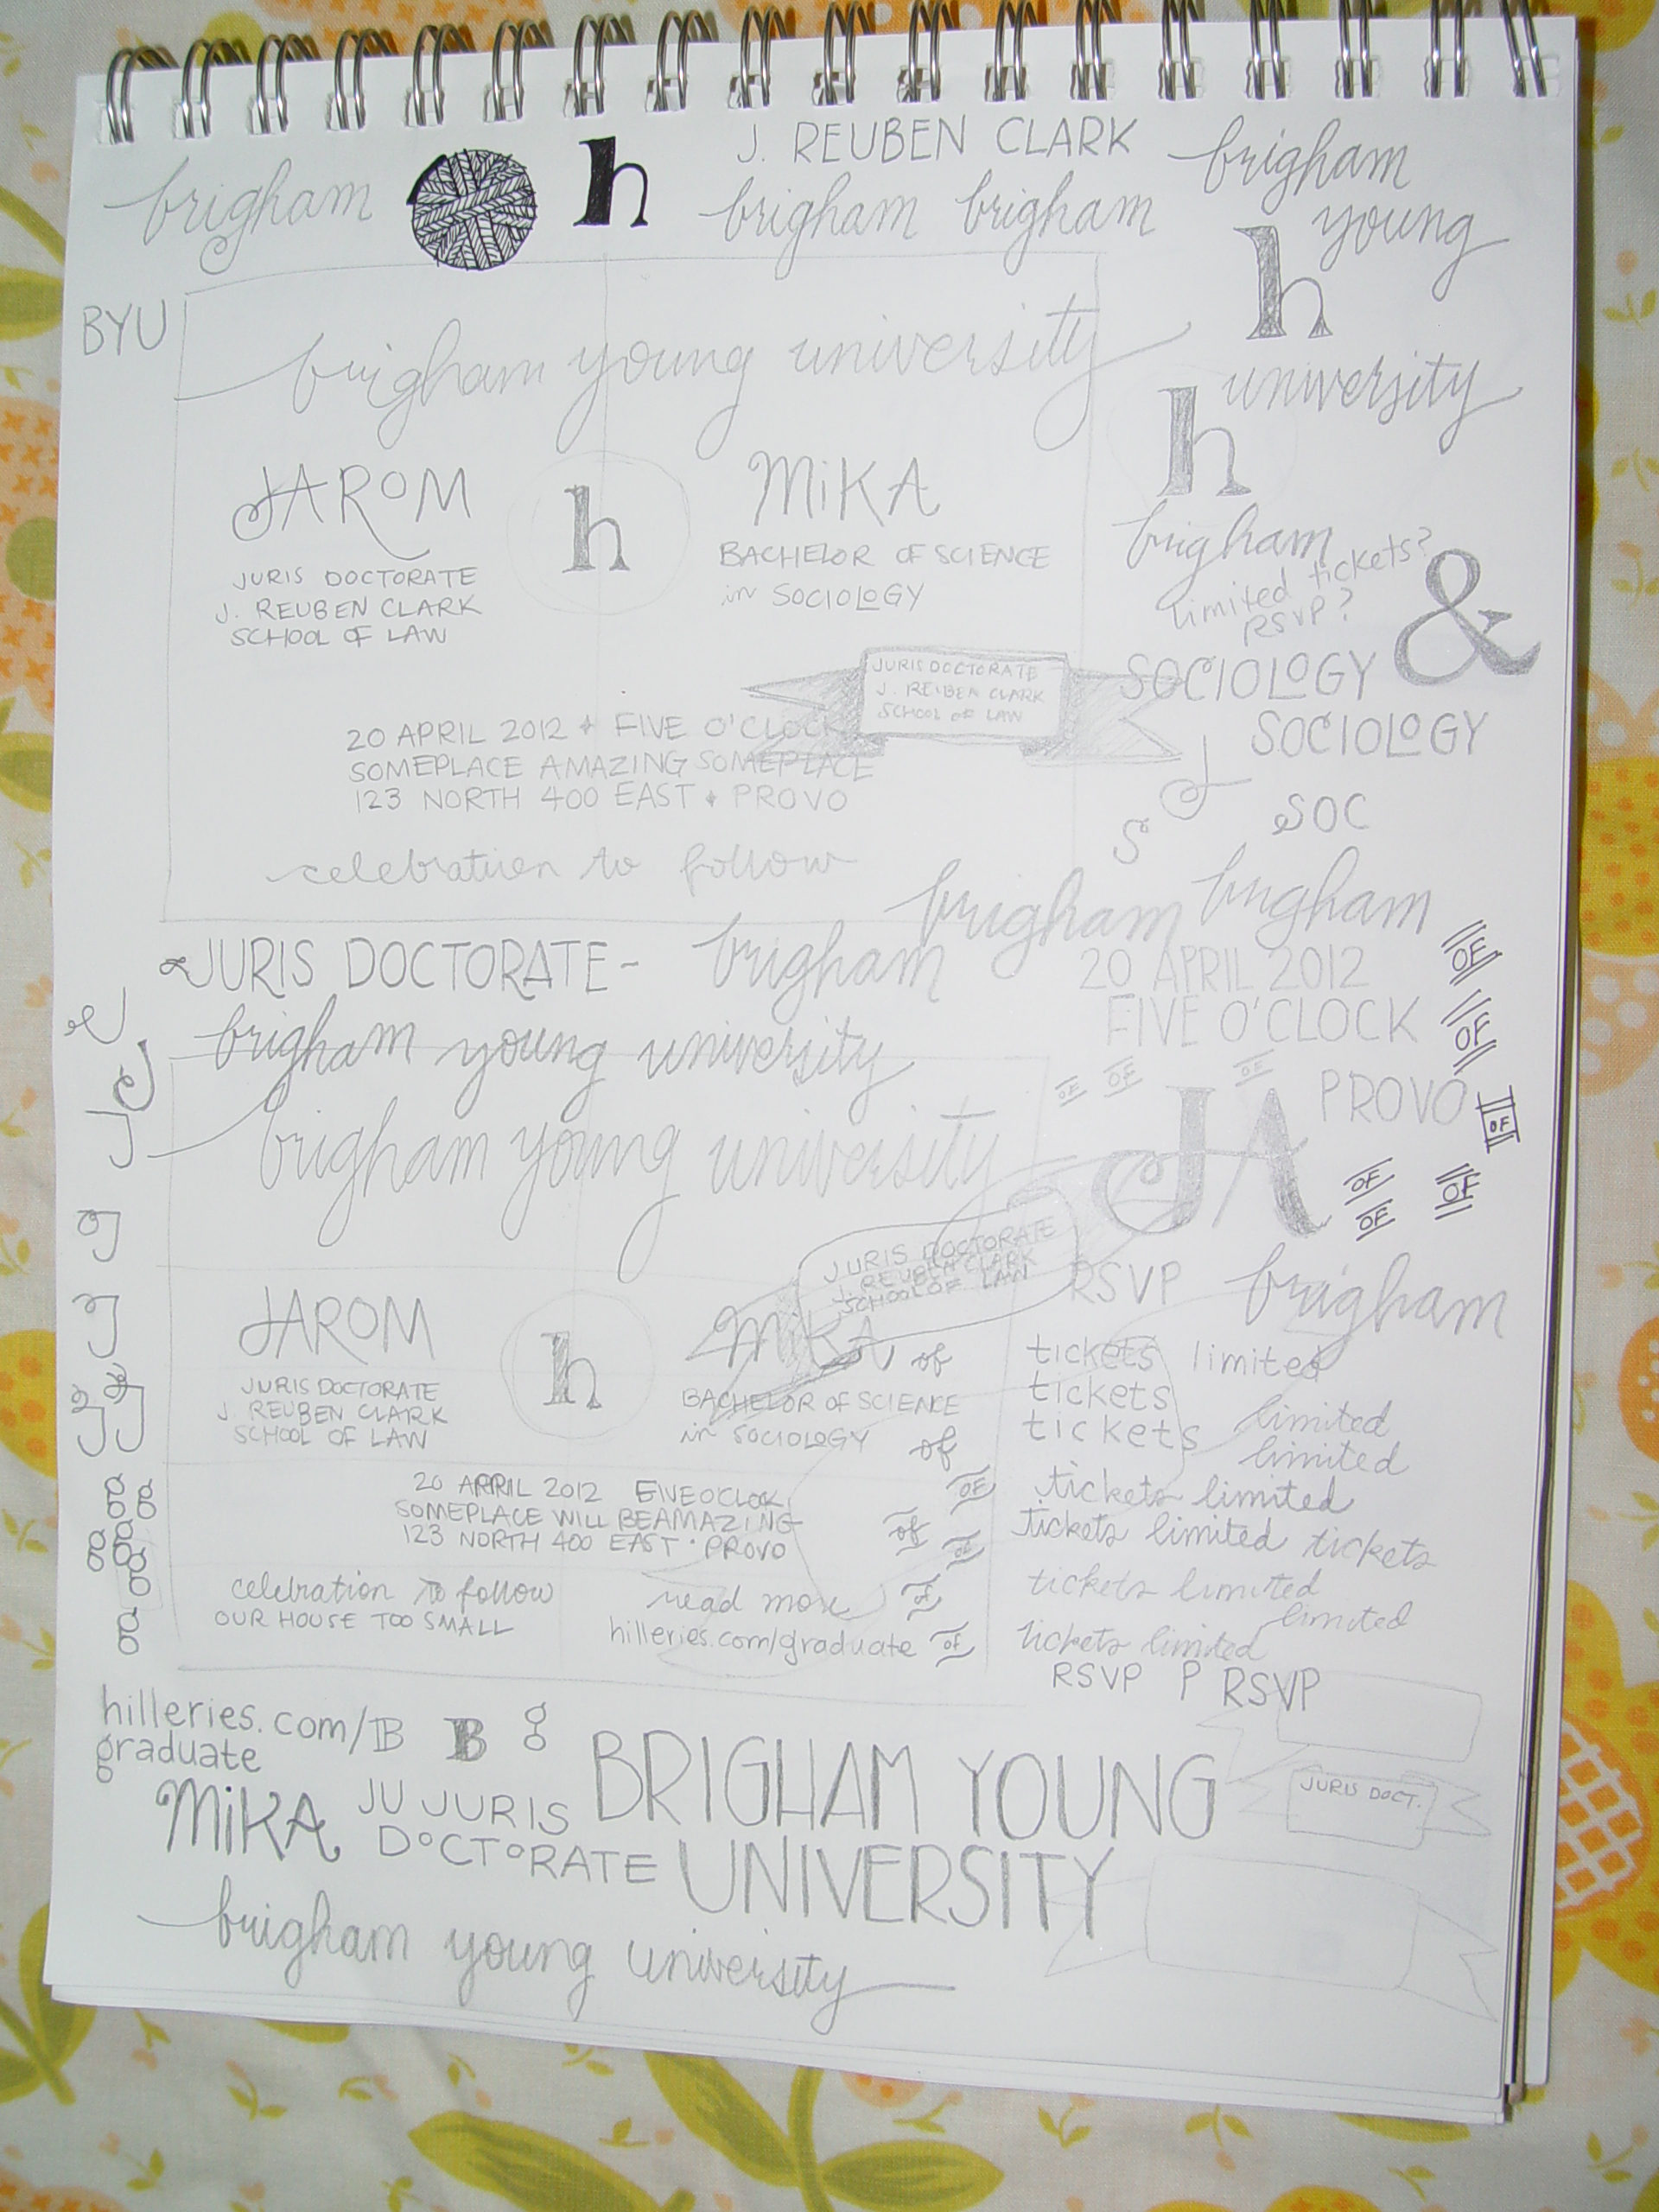 brigham
h
J. REUBEN CLARK
brigham brigham
brigham
young
h
university
BYU
brigham young university
h
JAROM
h
MiKA
JURIS DOCTORATE
J. REUBEN CLARK
SCHOOL OF LAW
BACHELOR OF SCIENCE
in SOCIOLOGY
brigham
limited tickets?
RSVP?
&
SOCIOLOGY
SOCIOLOGY
JURIS DOCTORATE
J. REUBEN CLARK
SCHOOL OF LAW
20 APRIL 2012 + FIVE O'CLOCK
SOMEPLACE AMAZING SOMEPLACE
123 NORTH 400 EAST + PROVO
J
SOC
S
celebration to follow
brigham
brigham
brigham
JURIS DOCTORATE-
20 APRIL 2012
FIVE O'CLOCK
OF
OF
brigham young university
OF OF OF
JA
PROVO
OF
brigham young university
OF OF
OF
JURIS DOCTORATE
J. REUBEN CLARK
SCHOOL OF LAW
RSVP
brigham
JAROM
h
MiKA
of
JURIS DOCTORATE
J. REUBEN CLARK
SCHOOL OF LAW
BACHELOR OF SCIENCE
in SOCIOLOGY
of
tickets limited
tickets
tickets
limited
limited
tickets limited
tickets limited tickets
tickets limited
limited
tickets limited
RSVP P RSVP
20 APRIL 2012 FIVE O'CLOCK
SOMEPLACE WILL BE AMAZING
123 NORTH 400 EAST · PROVO
OF
of
of
celebration to follow
OUR HOUSE TOO SMALL
read more
hilleries.com/graduate
of
OF
J
g
g g
g g
g g
g
g
hilleries.com/
graduate
B B g
BRIGHAM YOUNG
UNIVERSITY
JURIS DOCT.
MiKA
JU JURIS
DOCTORATE
brigham young university